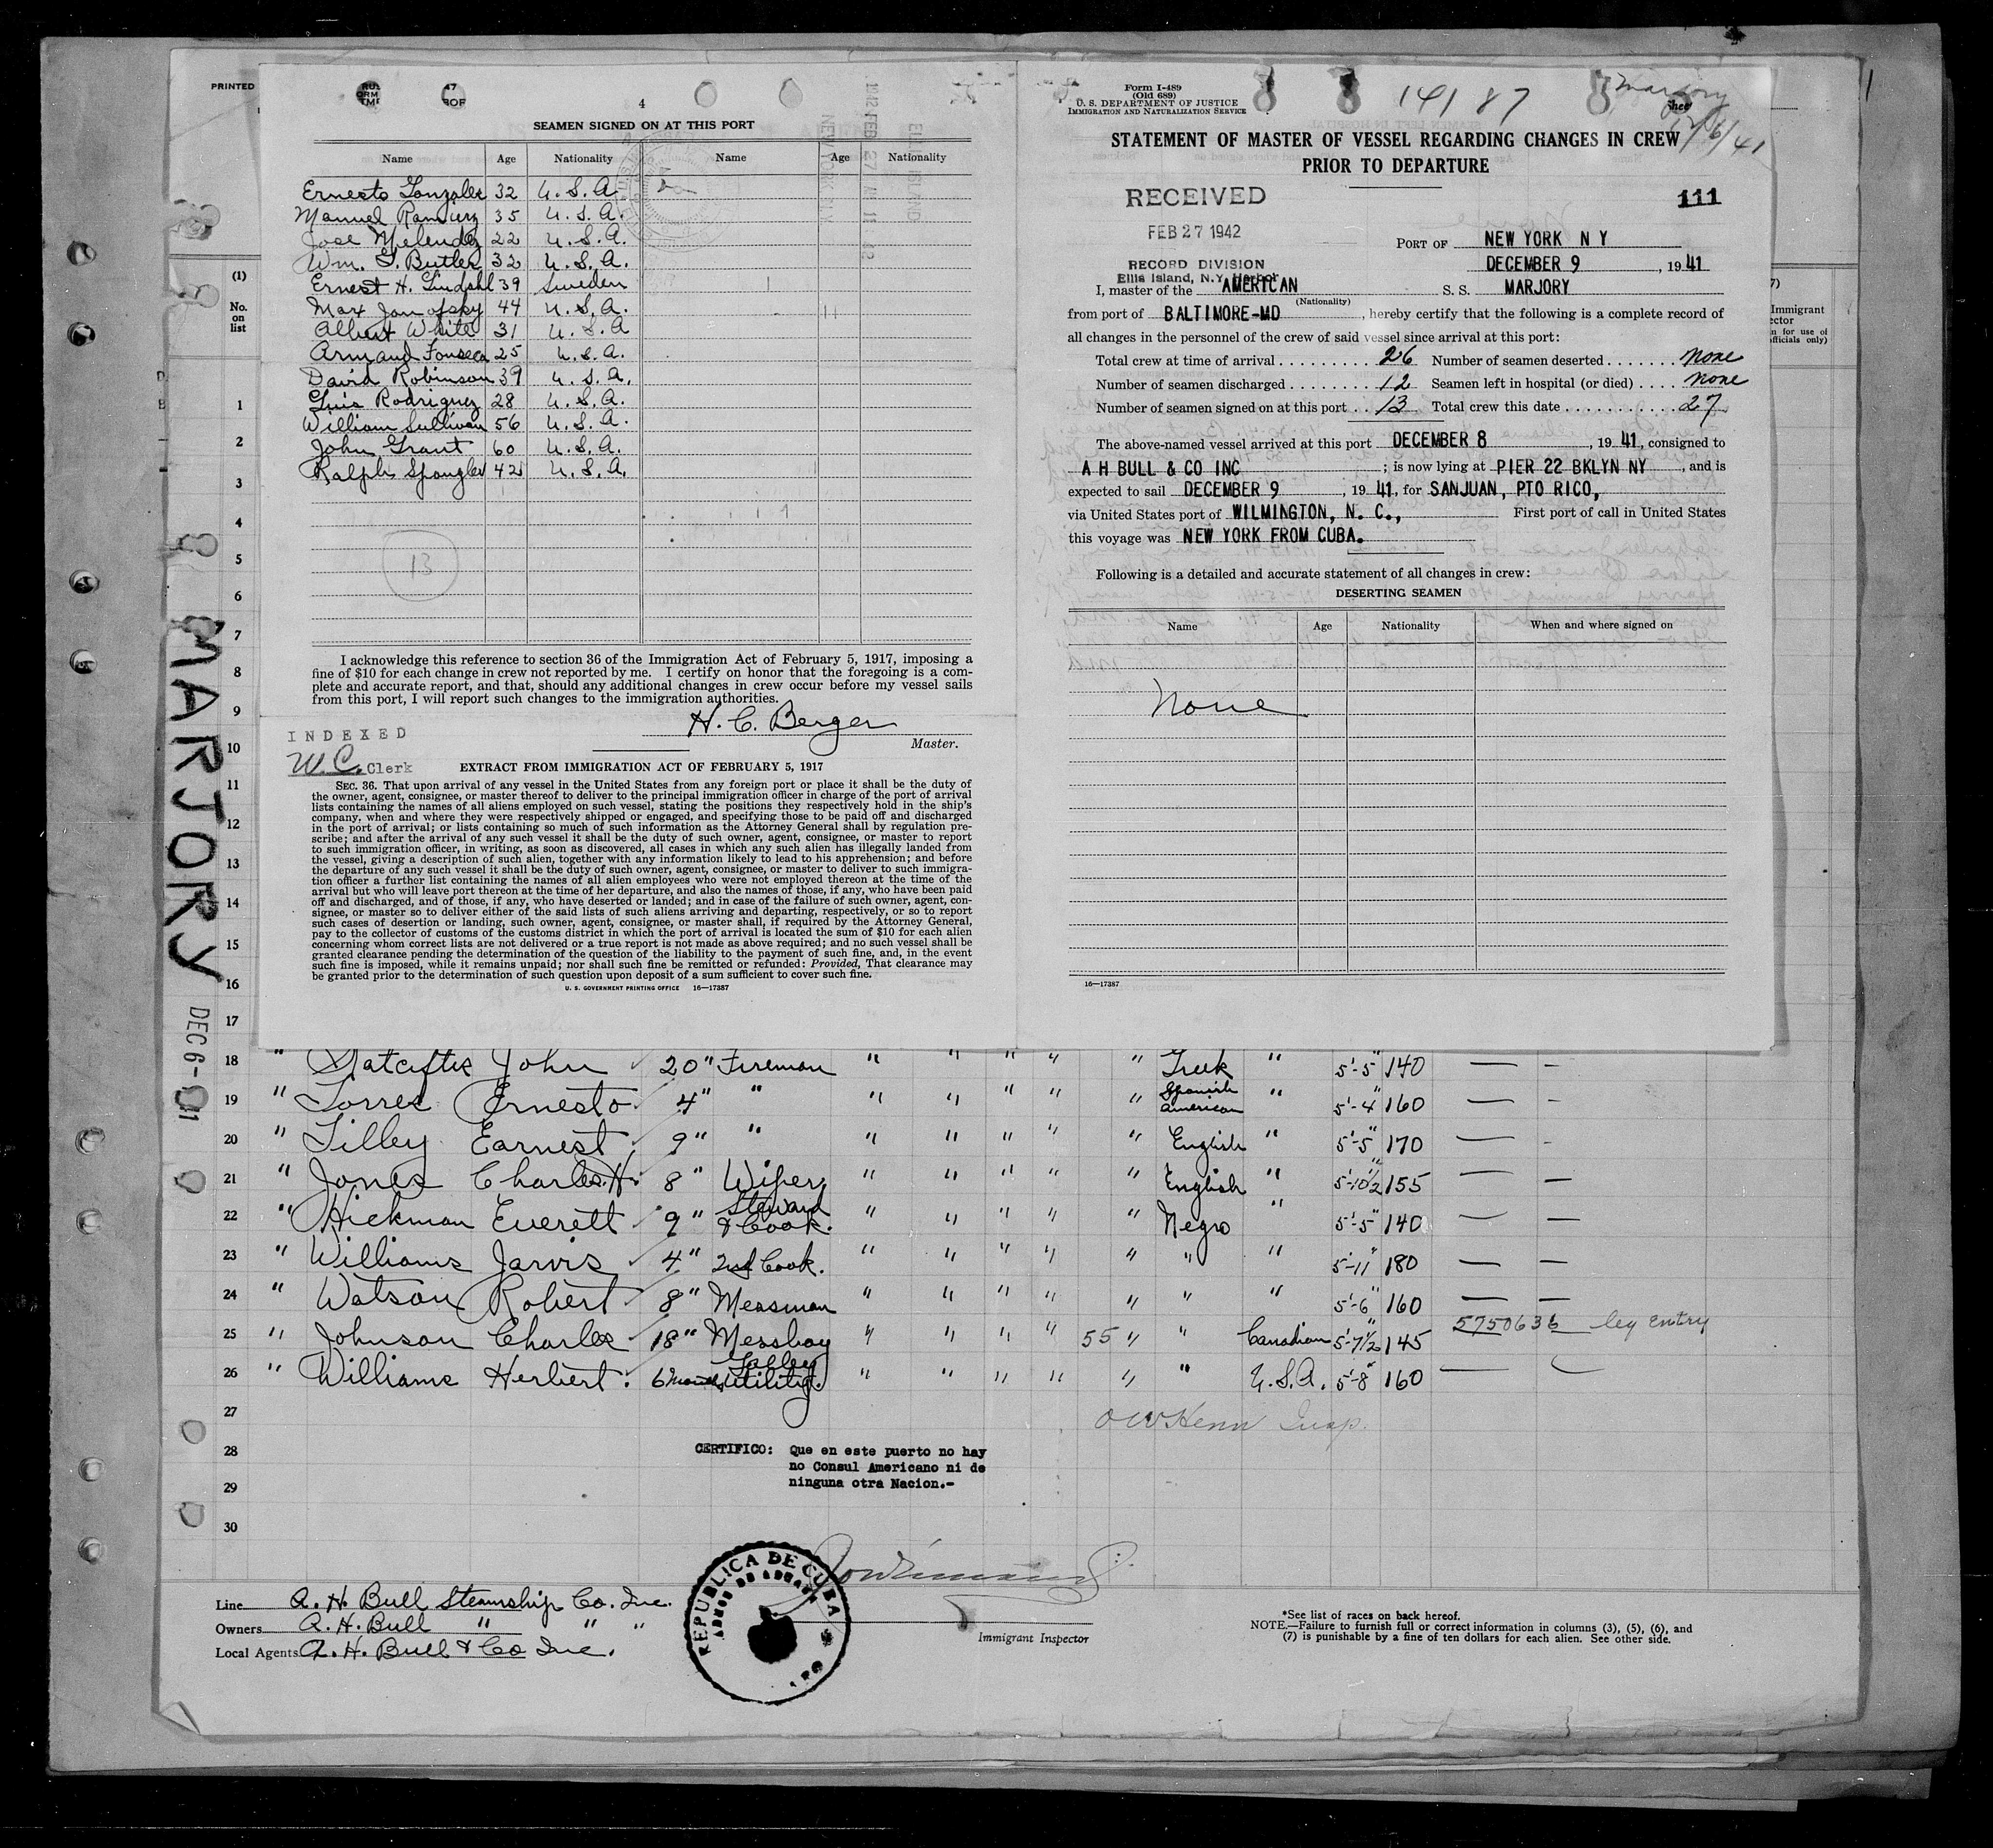 PRINTED
4
SEAMEN SIGNED ON AT THIS PORT
Name Age Nationality Name Age Nationality
Ernesto Gonzalez 32 U.S.A.
Manuel Ramirez 35 U.S.A.
Jose Melendez 22 U.S.A.
Wm. G. Butler 32 U.S.A.
Ernest H. Lindahl 39 Sweden
Max Janofsky 44 U.S.A.
Albert White 31 U.S.A
Armand Fonseca 25 U.S.A.
David Robinson 39 U.S.A.
Luis Rodriguez 28 U.S.A.
William Sullivan 56 U.S.A.
John Grant 60 U.S.A.
Ralph Spangler 42 U.S.A.
13
I acknowledge this reference to section 36 of the Immigration Act of February 5, 1917, imposing a
fine of $10 for each change in crew not reported by me. I certify on honor that the foregoing is a com-
plete and accurate report, and that, should any additional changes in crew occur before my vessel sails
from this port, I will report such changes to the immigration authorities.
H. C. Berger
Master.
INDEXED
W.C. Clerk
EXTRACT FROM IMMIGRATION ACT OF FEBRUARY 5, 1917
SEC. 36. That upon arrival of any vessel in the United States from any foreign port or place it shall be the duty of
the owner, agent, consignee, or master thereof to deliver to the principal immigration officer in charge of the port of arrival
lists containing the names of all aliens employed on such vessel, stating the positions they respectively hold in the ship's
company, when and where they were respectively shipped or engaged, and specifying those to be paid off and discharged
in the port of arrival; or lists containing so much of such information as the Attorney General shall by regulation pre-
scribe; and after the arrival of any such vessel it shall be the duty of such owner, agent, consignee, or master to report
to such immigration officer, in writing, as soon as discovered, all cases in which any such alien has illegally landed from
the vessel, giving a description of such alien, together with any information likely to lead to his apprehension; and before
the departure of any such vessel it shall be the duty of such owner, agent, consignee, or master to deliver to such immigra-
tion officer a further list containing the names of all alien employees who were not employed thereon at the time of the
arrival but who will leave port thereon at the time of her departure, and also the names of those, if any, who have been paid
off and discharged, and of those, if any, who have deserted or landed; and in case of the failure of such owner, agent, con-
signee, or master so to deliver either of the said lists of such aliens arriving and departing, respectively, or so to report
such cases of desertion or landing, such owner, agent, consignee, or master shall, if required by the Attorney General,
pay to the collector of customs of the customs district in which the port of arrival is located the sum of $10 for each alien
concerning whom correct lists are not delivered or a true report is not made as above required; and no such vessel shall be
granted clearance pending the determination of the question of the liability to the payment of such fine, and, in the event
such fine is imposed, while it remains unpaid; nor shall such fine be remitted or refunded: Provided, That clearance may
be granted prior to the determination of such question upon deposit of a sum sufficient to cover such fine.
U. S. GOVERNMENT PRINTING OFFICE 16—17387
Form I-489
(Old 689)
U. S. DEPARTMENT OF JUSTICE
IMMIGRATION AND NATURALIZATION SERVICE
14187
Marjory
12/6/41
STATEMENT OF MASTER OF VESSEL REGARDING CHANGES IN CREW
PRIOR TO DEPARTURE
RECEIVED
111
FEB 27 1942
PORT OF NEW YORK N Y
RECORD DIVISION
DECEMBER 9, 1941
Ellis Island, N.Y. Harbor
I, master of the AMERTCAN S. S. MARJORY
(Nationality)
from port of BALTIMORE-MD, hereby certify that the following is a complete record of
all changes in the personnel of the crew of said vessel since arrival at this port:
Total crew at time of arrival 26 Number of seamen deserted none
Number of seamen discharged 12 Seamen left in hospital (or died) none
Number of seamen signed on at this port 13 Total crew this date 27
The above-named vessel arrived at this port DECEMBER 8, 1941, consigned to
A H BULL & CO INC; is now lying at PIER 22 BKLYN NY, and is
expected to sail DECEMBER 9, 1941, for SANJUAN, PTO RICO,
via United States port of WILMINGTON, N. C., First port of call in United States
this voyage was NEW YORK FROM CUBA.
Following is a detailed and accurate statement of all changes in crew:
DESERTING SEAMEN
Name Age Nationality When and where signed on
None
16—17387
(1)
No.
on
list
1
2
3
4
5
6
7
8
9
10
11
12
13
14
15
16
17
MARJORY
DEC 6-
18 " John 20" Fireman " " " " " Greek " 5'-5" 140 — –
19 " Torres Ernesto 4" " " " " " " Spanish American " 5'-4" 160 — –
20 " Tilley Earnest 9" " " " " " " English " 5'-5" 170 — -
21 " Jones Charles H. 8" Wiper " " " " " English " 5'-10 1/2" 155 — —
22 " Hickman Everett 9" Steward & Cook. " " " " " Negro " 5'-5" 140 — —
23 " Williams Jarvis 4" 2nd Cook. " " " " " " " 5'-11" 180 — —
24 " Watson Robert 8" Messman " " " " " " " 5'-6" 160 — —
25 " Johnson Charles 18" Messboy " " " " 55 " " Canadian 5'-7 1/2" 145 5750636 leg entry
26 " Williams Herbert 6 Utility. " " " " " " U.S.A. 5'-8" 160 —
27
28
29
30
CERTIFICO: Que en este puerto no hay
no Consul Americano ni de
ninguna otra Nacion.-
REPUBLICA DE CUBA
Line A. H. Bull Steamship Co. Inc.
Owners A. H. Bull " " "
Local Agents A. H. Bull & Co Inc.
Immigrant Inspector
*See list of races on back hereof.
NOTE.—Failure to furnish full or correct information in columns (3), (5), (6), and
(7) is punishable by a fine of ten dollars for each alien. See other side.